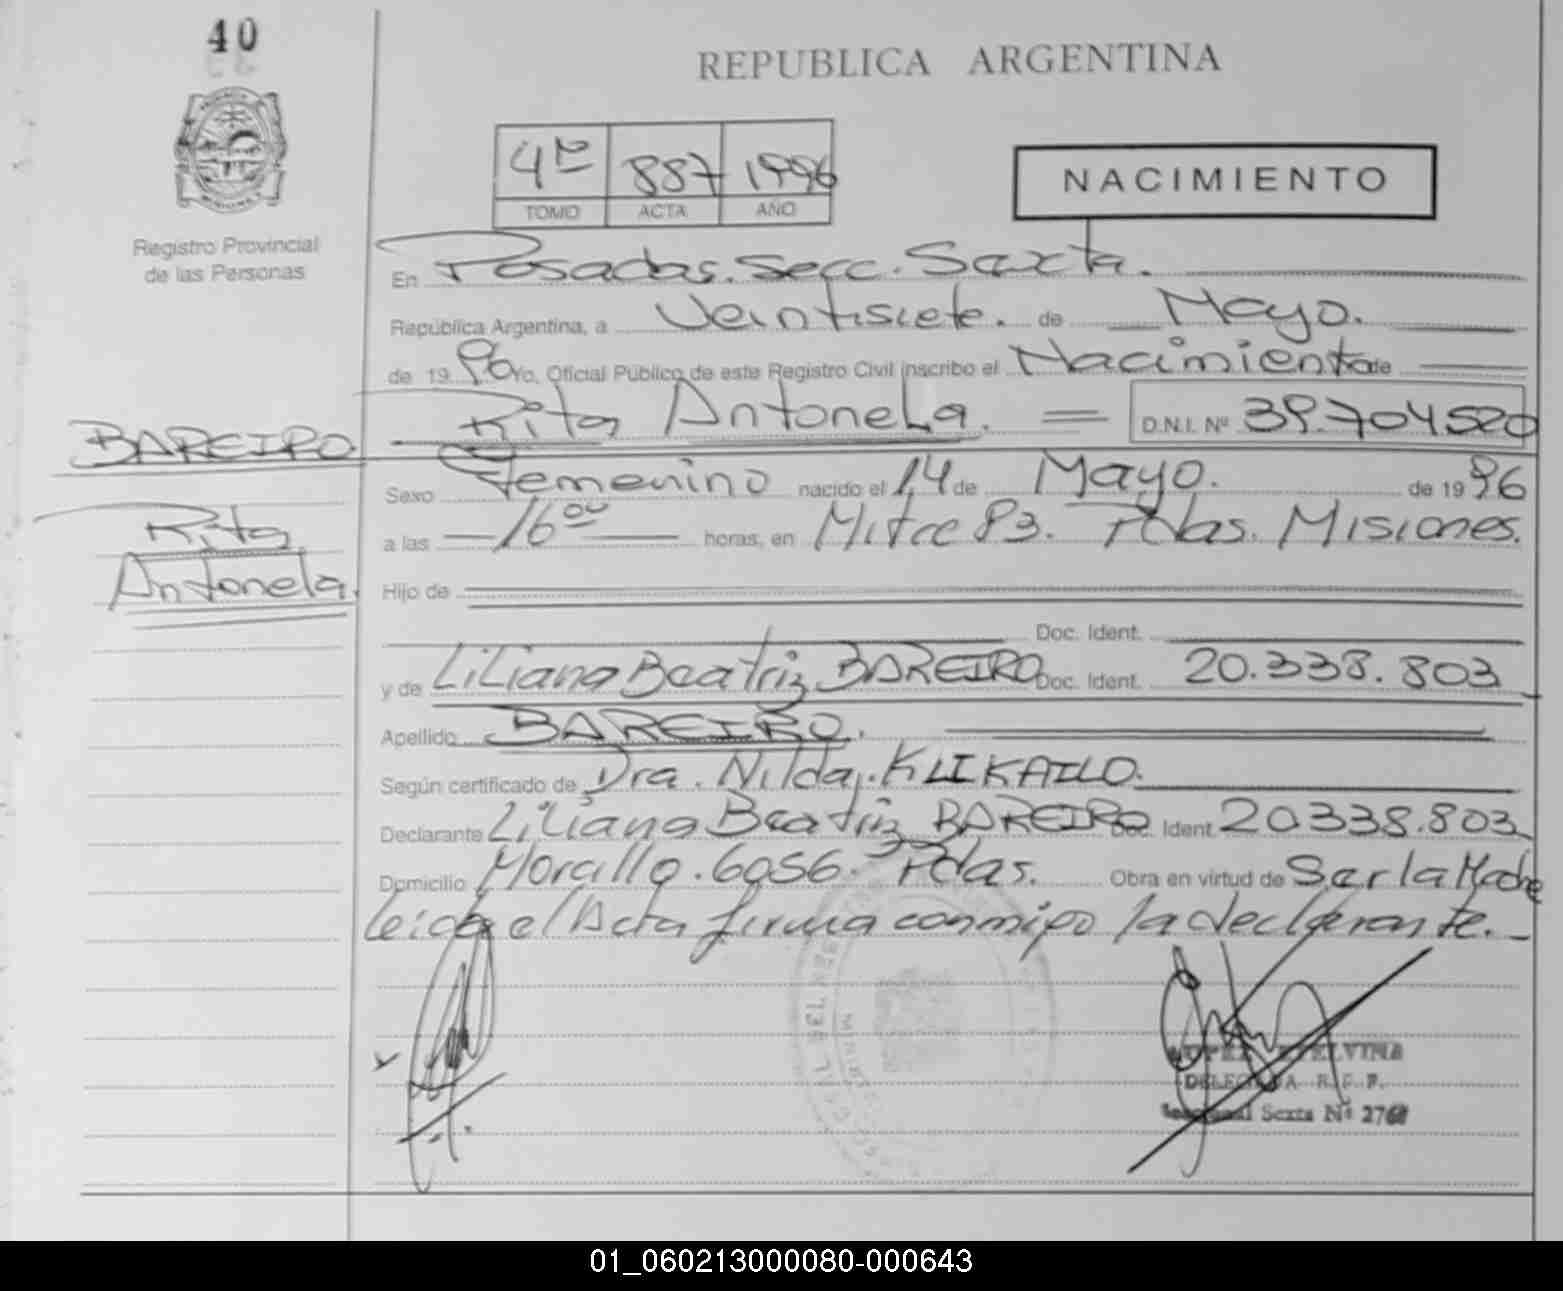 40
REPUBLICA ARGENTINA
4º 887 1996
TOMO ACTA AÑO
NACIMIENTO
Registro Provincial
de las Personas
En Posadas. Secc. Sexta.
República Argentina, a Veintisiete. de Mayo.
de 19 96 Yo, Oficial Público de este Registro Civil inscribo el Nacimiento de
BAREIRO Rita Antonela. D.N.I. Nº 39.704520
Rita
Antonela.
Sexo Femenino nacido el 14 de Mayo. de 19 96
a las 16 00 horas, en Mitre 83. Pdas. Misiones.
Hijo de
Doc. Ident.
y de Liliana Beatriz BAREIRO Doc. Ident. 20.338.803
Apellido BAREIRO.
Según certificado de Dra. Nilda. KLIKAILO.
Declarante Liliana Beatriz BAREIRO Doc. Ident 20338.803
Domicilio Morcillo. 6056. Pdas. Obra en virtud de Ser la Madre
leída el Acta firma conmigo la declarante.
ETELVINA
DELEGADA R.P.P.
Seccional Sexta Nº
01_060213000080-000643